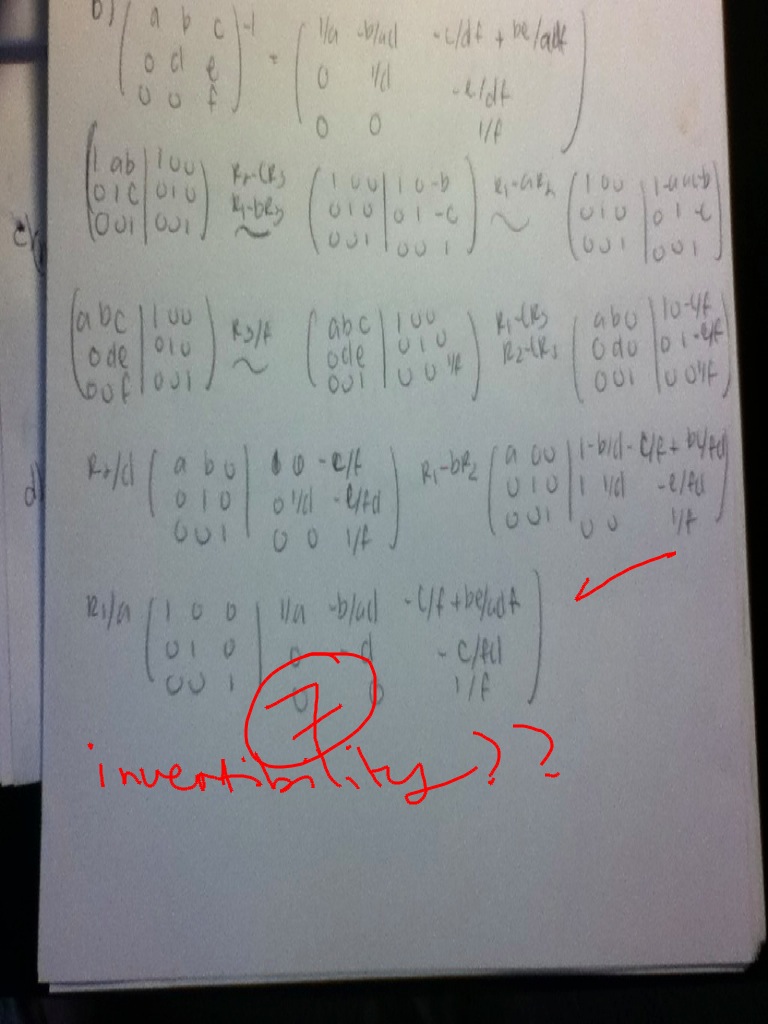 b) ( a b c ; 0 d e ; 0 0 f )^-1 = ( 1/a -b/ad -c/df + be/adf ; 0 1/d -e/df ; 0 0 1/f )
( 1 a b | 1 0 0 ; 0 1 c | 0 1 0 ; 0 0 1 | 0 0 1 ) R2-CR3 R1-bR3 ~ ( 1 0 0 | 1 0 -b ; 0 1 0 | 0 1 -c ; 0 0 1 | 0 0 1 ) R1-aR2 ~ ( 1 0 0 ; 0 1 0 | 0 1 -c ; 0 0 1 | 0 0 1 )
c)
( a b c | 1 0 0 ; 0 d e | 0 1 0 ; 0 0 f | 0 0 1 ) R3/f ~ ( a b c | 1 0 0 ; 0 d e | 0 1 0 ; 0 0 1 | 0 0 1/f ) R1-CR3 R2-CR3 ( a b 0 | 1 0 -c/f ; 0 d 0 | 0 1 -e/f ; 0 0 1 | 0 0 1/f )
d)
R2/d ( a b 0 | 1 0 -c/f ; 0 1 0 | 0 1/d -e/fd ; 0 0 1 | 0 0 1/f ) R1-bR2 ( a 0 0 | 1 -b/d -c/f + be/fd ; 0 1 0 | 1 1/d -e/fd ; 0 0 1 | 0 0 1/f )
R1/a ( 1 0 0 | 1/a -b/ad -c/f + be/adf ; 0 1 0 | 0 d -c/fd ; 0 0 1 | 0 0 1/f )
7
invertibility??